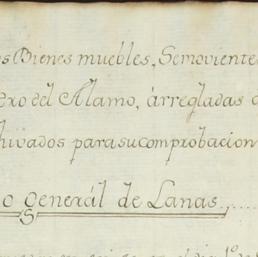 os Bienes muebles, Semoviente
ero del Alamo, árregladas
hivados parasucomprobacion
o generál de Lanas